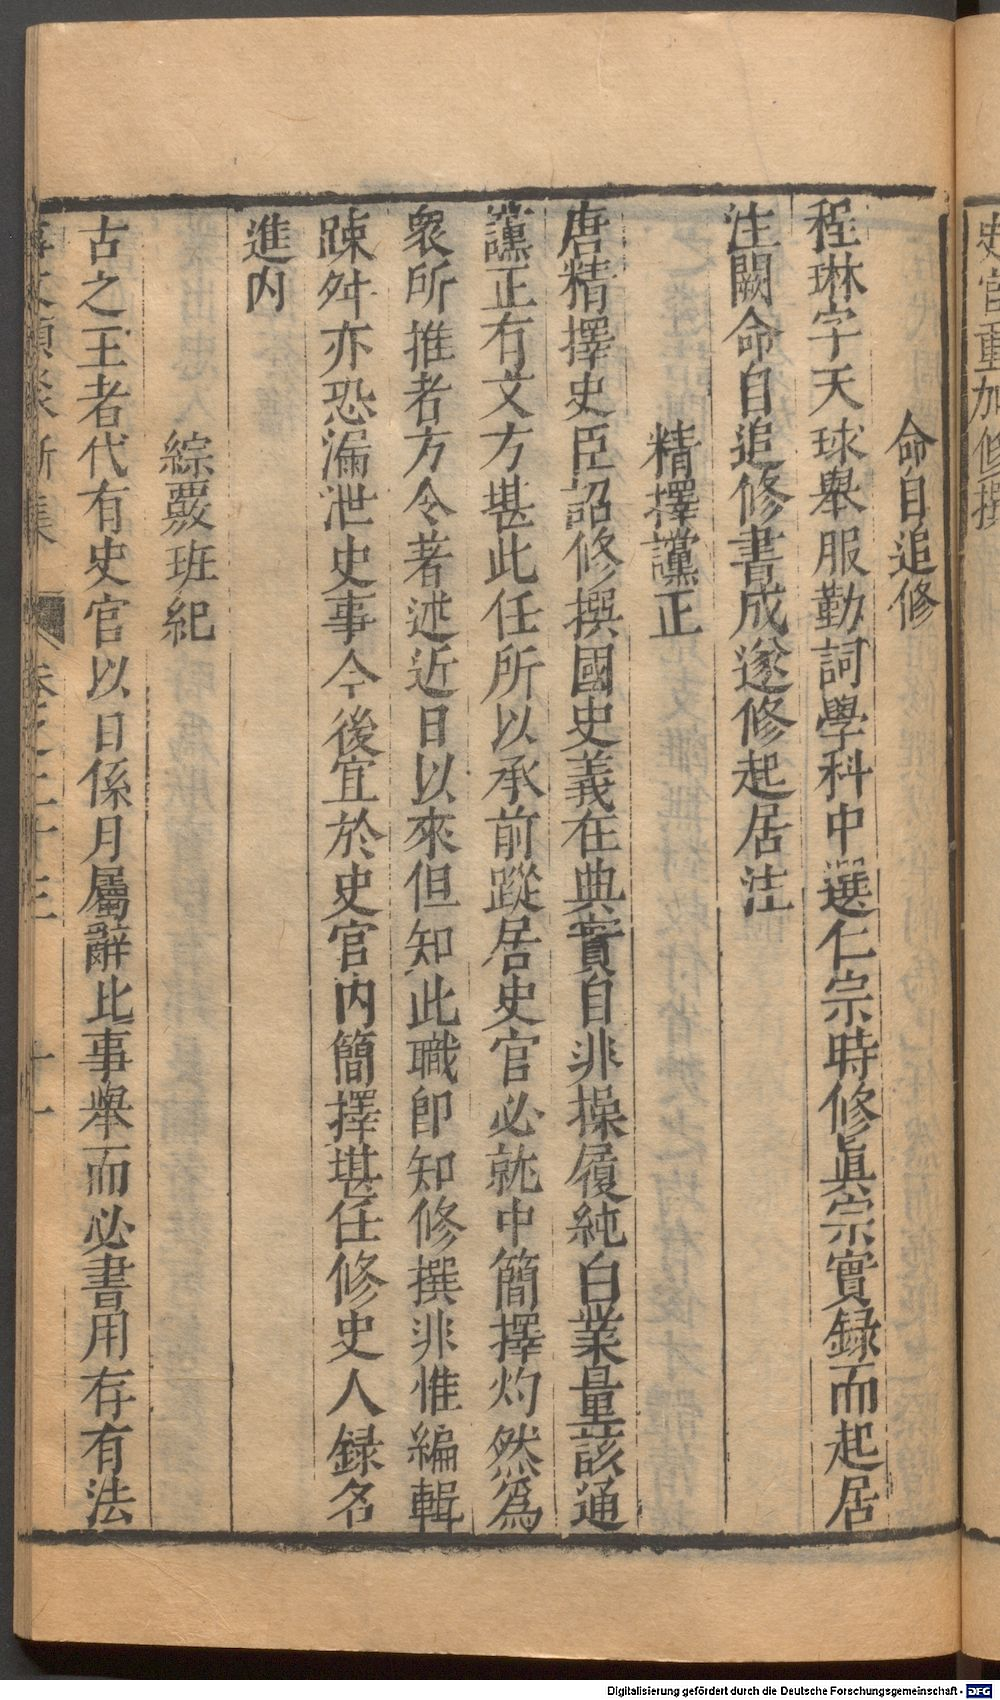 史官重加修撰
命自追修
程琳字天球舉服勤詞學科中選仁宗時修眞宗實録而起居
注闕命自追修書成遂修起居注
精擇讜正
唐精擇史臣詔修撰國史義在典實自非操履純白業量該通
讜正有文方堪此任所以承前蹤居史官必就中簡擇灼然爲
衆所推者方令著述近日以來但知此職即知修撰非惟編輯
踈舛亦恐漏泄史事今後宜於史官内簡擇堪任修史人録名
進内
綜覈班紀
古之王者代有史官以日係月屬辭比事舉而必書用存有法
事文類聚新集 卷之二十三 十一
Digitalisierung gefördert durch die Deutsche Forschungsgemeinschaft - DFG